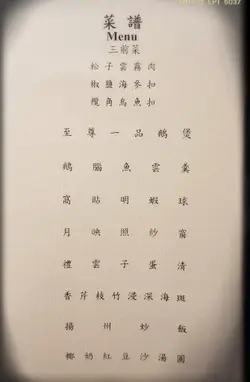 菜譜
Menu
三前菜
松子雲霧肉
椒鹽海參扣
欖角烏魚扣
至尊一品鵝煲
鵝腦魚雲羹
窩貼明蝦球
月映照紗窗
禮雲子蛋清
香芹枝竹浸深海斑
揚州炒飯
椰奶紅豆沙湯圓